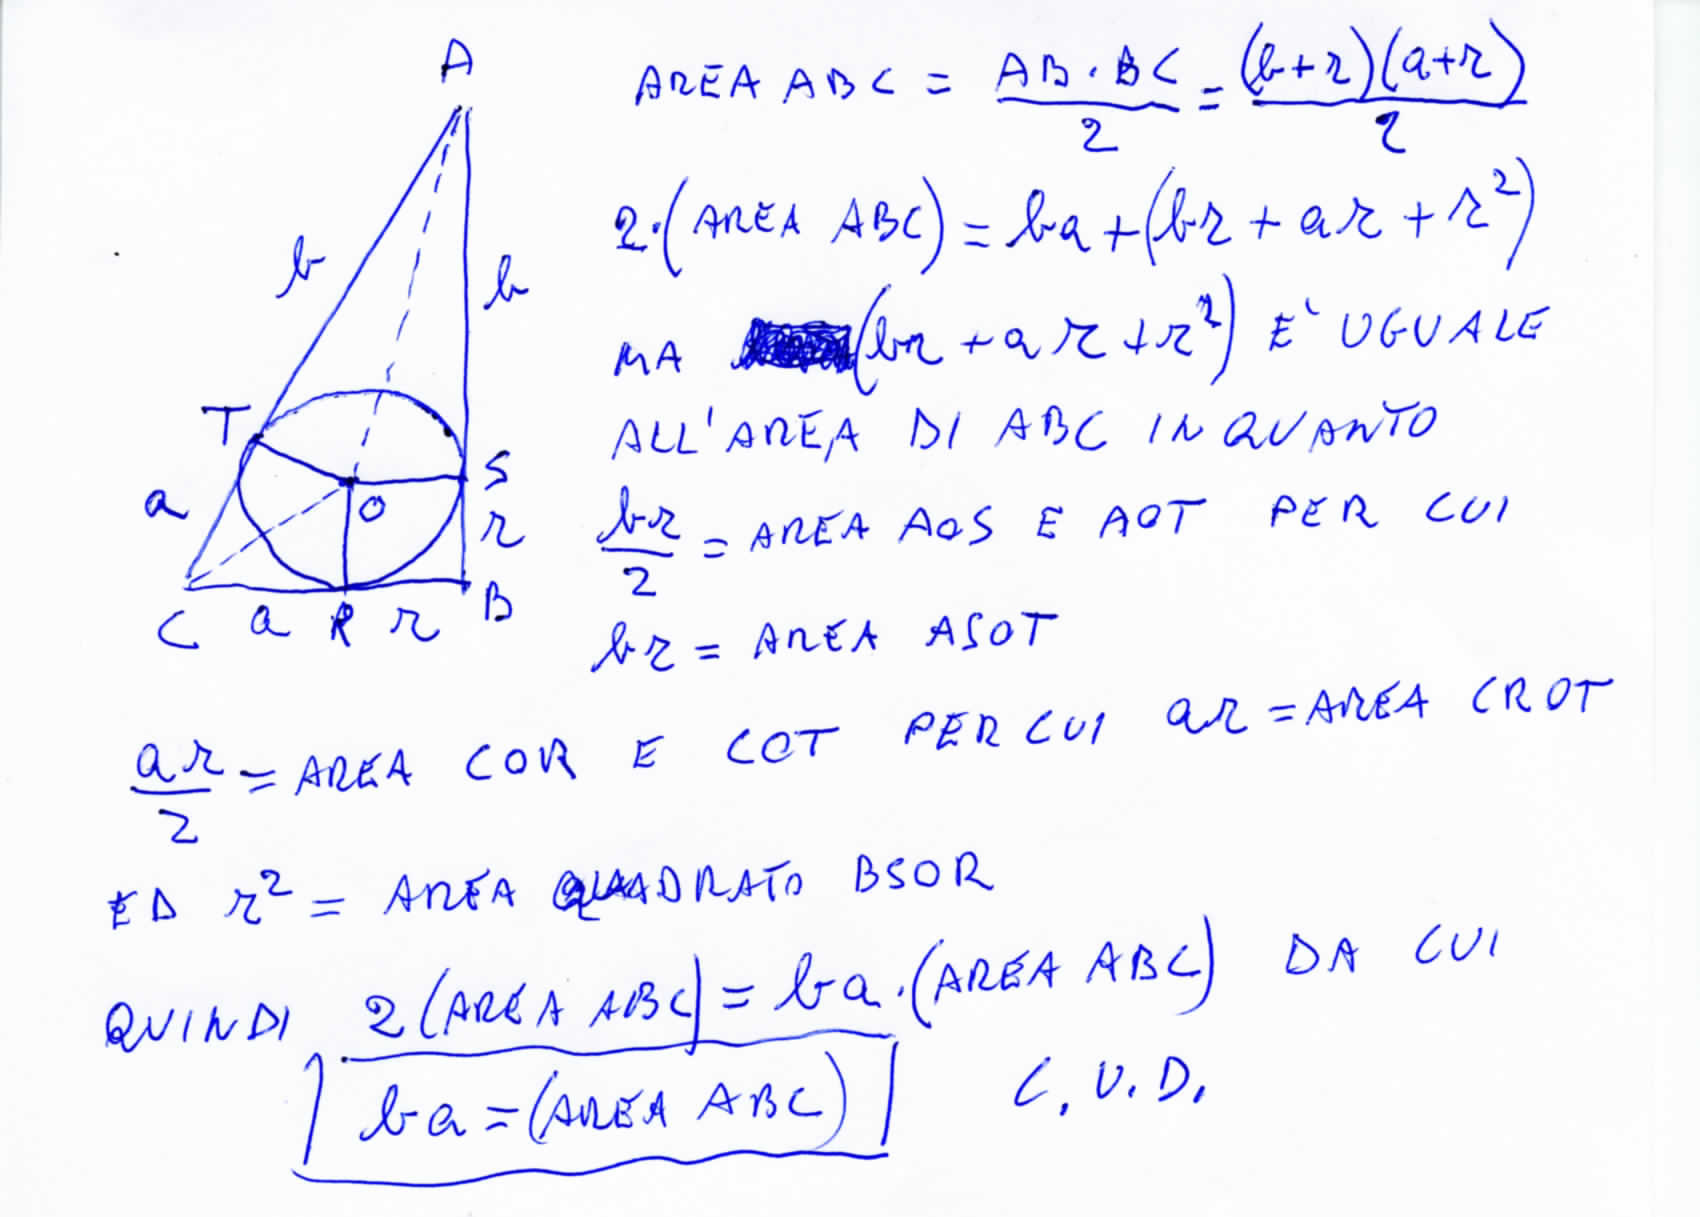 A
AREA ABC = AB·BC/2 = (b+r)(a+r)/2
2·(AREA ABC) = ba+(br+ar+r²)
b
b
MA (br+ar+r²) E' UGUALE
T
ALL'AREA DI ABC INQUANTO
S
a
O
r
br/2 = AREA AOS E AOT PER CUI
C a R r B
br = AREA ASOT
ar/2 = AREA COR E COT PER CUI ar = AREA CROT
ED r² = AREA QUADRATO BSOR
QUINDI 2(AREA ABC) = ba·(AREA ABC) DA CUI
ba = (AREA ABC) C.V.D.